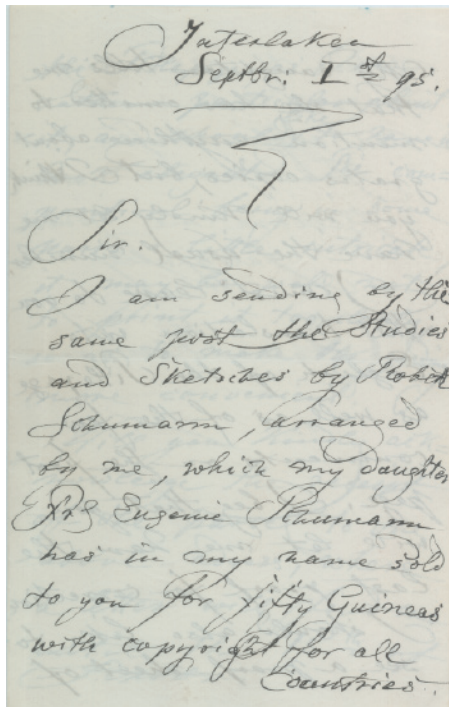 Interlaken
Septbr: 1st 95.
Sir.
I am sending by the
same post the Studies
and Sketches by Robert
Schumann, arranged
by me, which my daughter
Eugenie Schumann
has in my name sold
to you for fifty Guineas
with copyright for all
Countries.